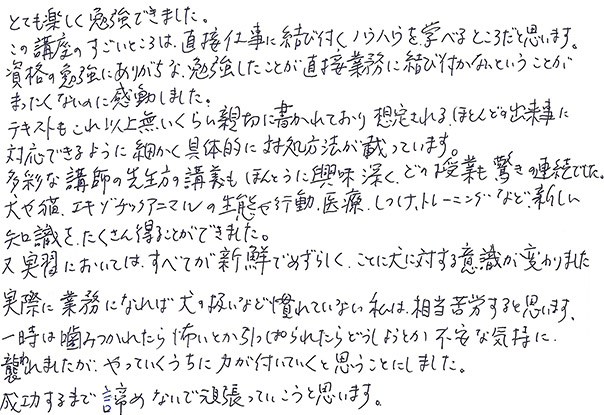 とても楽しく勉強できました。
この講座のすごいところは、直接仕事に結び付くノウハウを学べるところだと思います。
資格の勉強にありがちな、勉強したことが直接業務に結び付かないということが
まったくないのに感動しました。
テキストもこれ以上無いくらい親切に書かれており想定される、ほとんどの出来事に
対応できるように細かく具体的に対処方法が載っています。
多彩な講師の先生方の講義もほんとうに興味深く、どの授業も驚きの連続でした。
犬や猫、エキゾチックアニマルの生態や行動、医療、しつけ、トレーニングなど、新しい
知識を、たくさん得ることができました。
又実習においては、すべてが新鮮でめずらしく、ことに犬に対する意識が変わりました
実際に業務になれば犬の扱いなど慣れていない私は、相当苦労すると思います、
一時は噛みつかれたら怖いとか引っぱられたらどうしようとか不安な気持に、
襲われましたが、やっていくうちに力が付いていくと思うことにしました。
成功するまで諦めないで頑張っていこうと思います。